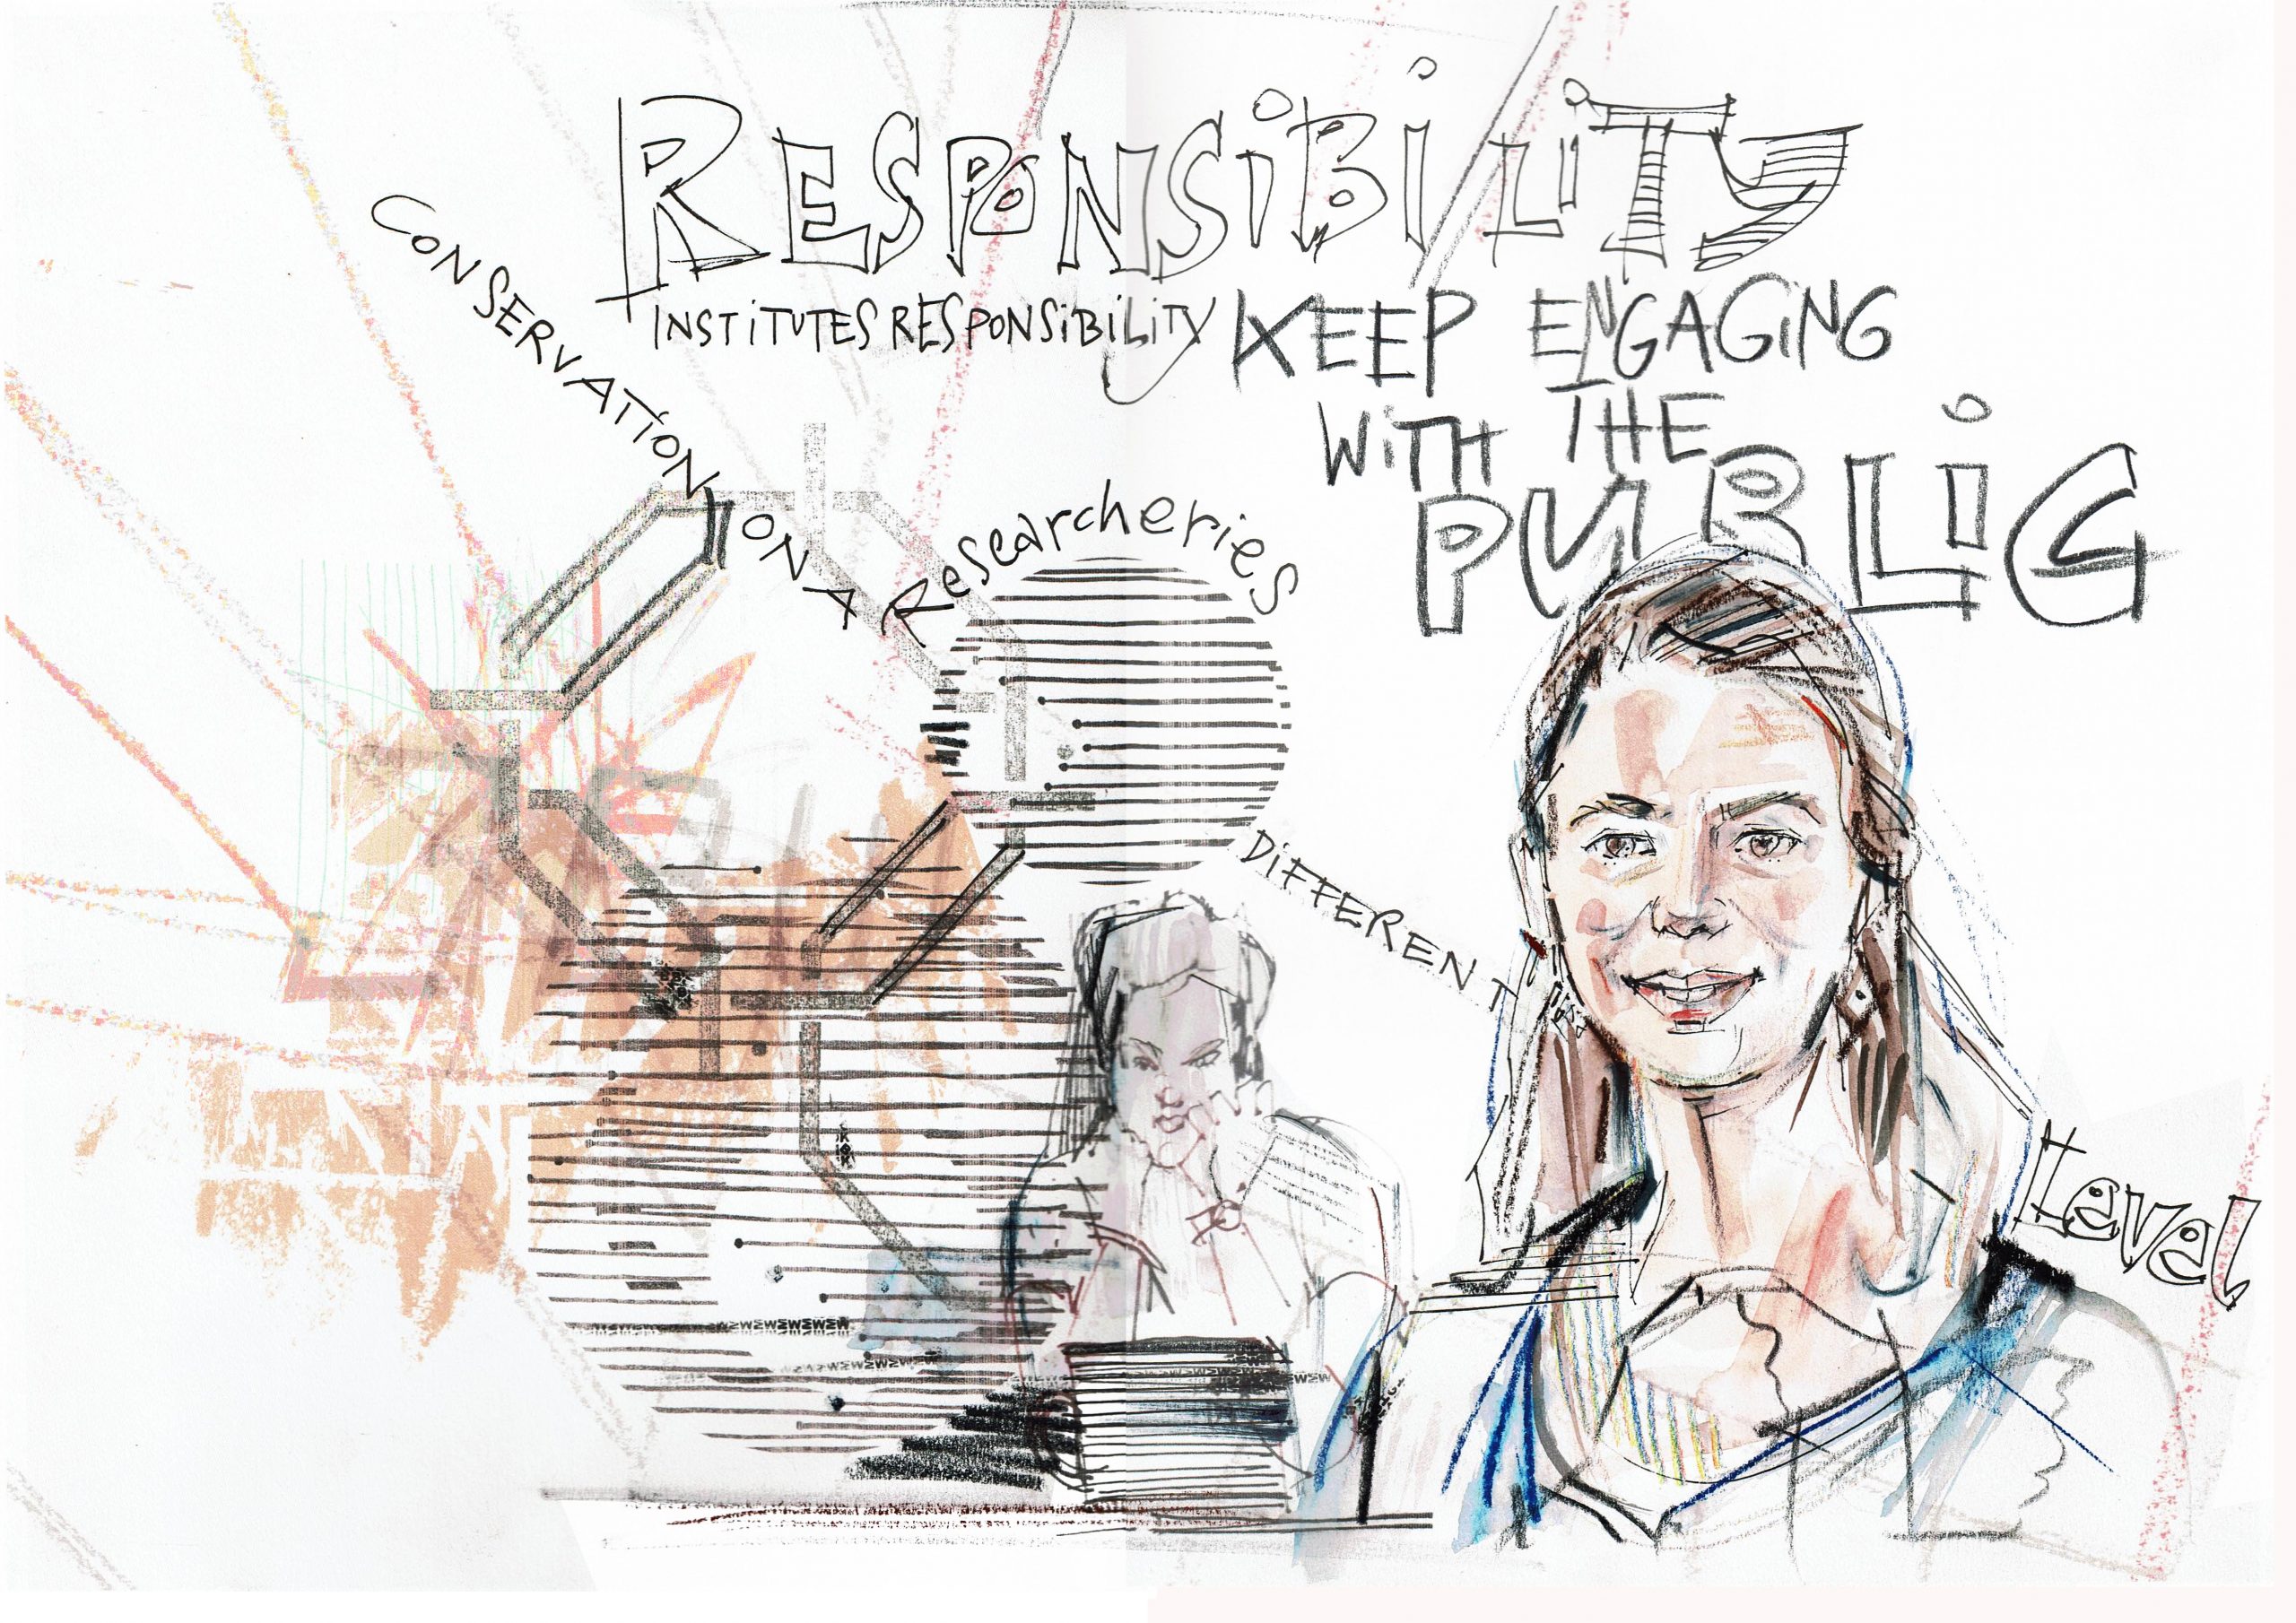 RESPONSiBiLiTY
INSTiTUTES RESPONSiBiLiTY
KEEP ENGAGiNG
WiTH THE
PUBLiC
CONSERVATiON ON A Researcheries
DiFFERENT
level